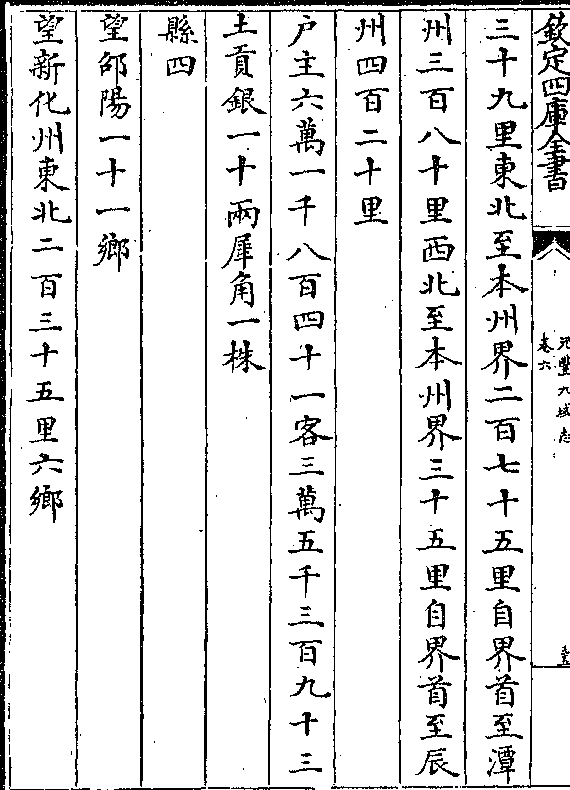 欽定四庫全書
元豐九域志
卷六
三十九里東北至本州界二百七十五里自界首至潭
州三百八十里西北至本州界三十五里自界首至辰
州四百二十里
户主六萬一千八百四十一客三萬五千三百九十三
土貢銀一十兩犀角一株
縣四
望邵陽一十一鄉
望新化州東北二百三十五里六鄉